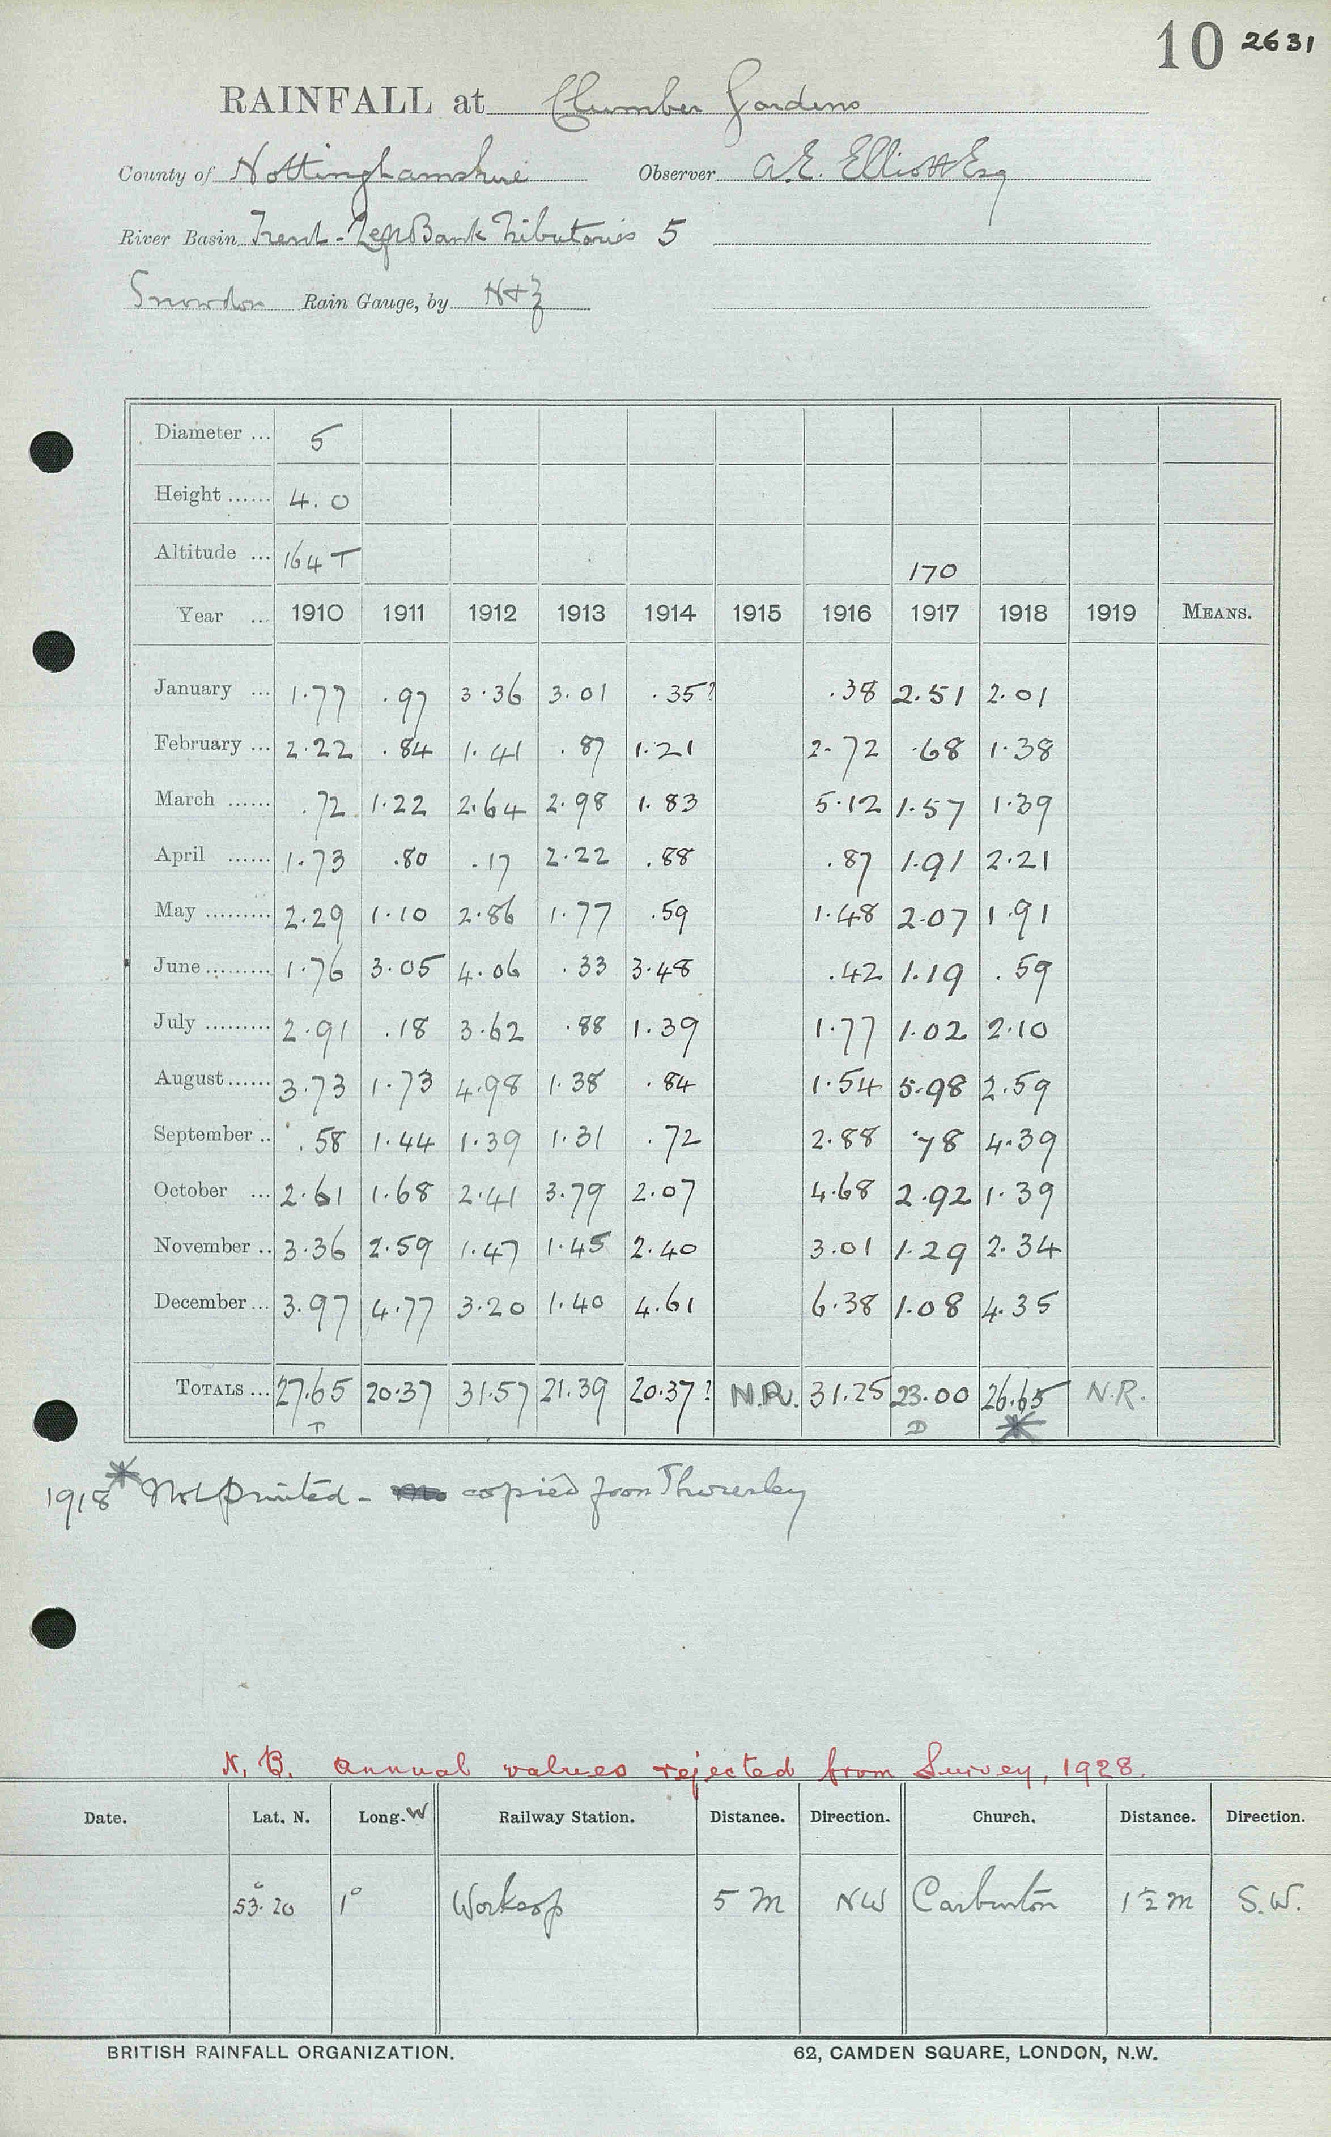 10 2631
RAINFALL at Clumber Gardens
County of Nottinghamshire Observer A.E. Elliott Esq
River Basin Trent - Left Bank Tributaries 5
Snowdon Rain Gauge, by N+Z
Diameter ... 5
Height ...... 4.0
Altitude ... 164 T 170
Year ... 1910 1911 1912 1913 1914 1915 1916 1917 1918 1919 MEANS.
January ... 1.77 .97 3.36 3.01 .35? .38 2.51 2.01
February ... 2.22 .84 1.41 .87 1.21 2.72 .68 1.38
March ...... .72 1.22 2.64 2.98 1.83 5.12 1.57 1.39
April ...... 1.73 .80 .17 2.22 .88 .87 1.91 2.21
May ......... 2.29 1.10 2.86 1.77 .59 1.48 2.07 1.91
June ......... 1.76 3.05 4.06 .33 3.48 .42 1.19 .59
July ......... 2.91 .18 3.62 .88 1.39 1.77 1.02 2.10
August ...... 3.73 1.73 4.98 1.38 .84 1.54 5.98 2.59
September .. .58 1.44 1.39 1.31 .72 2.88 .78 4.39
October ... 2.61 1.68 2.41 3.79 2.07 4.68 2.92 1.39
November .. 3.36 2.59 1.47 1.45 2.40 3.01 1.29 2.34
December ... 3.97 4.77 3.20 1.40 4.61 6.38 1.08 4.35
TOTALS ... 27.65 20.37 31.57 21.39 20.37? N.R. 31.25 23.00 26.65 N.R.
T D *
1918 * Not printed - copied from Thoresby
N.B. Annual values rejected from Survey, 1928.
Date. Lat. N. Long. W Railway Station. Distance. Direction. Church. Distance. Direction.
53°.20 1° Worksop 5 m NW Carburton 1½ m S.W.
BRITISH RAINFALL ORGANIZATION. 62, CAMDEN SQUARE, LONDON, N.W.